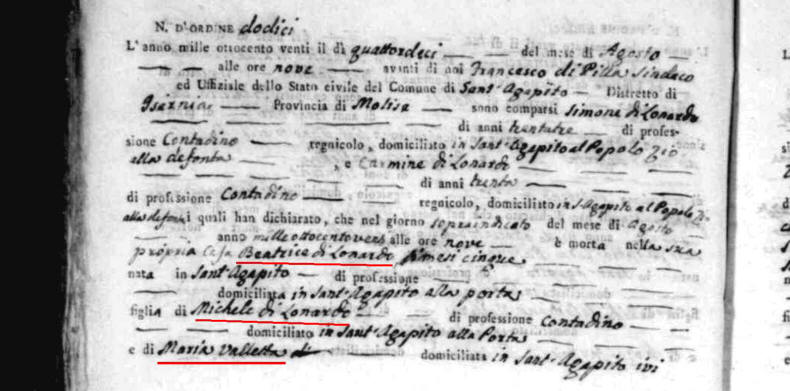 N. D'ORDINE dodici
L'anno mille ottocento venti il dì quattordeci del mese di Agosto
alle ore nove avanti di noi Francesco di Pilla Sindaco
ed Uffiziale dello Stato civile del Comune di Sant'Agapito Distretto di
Isernia Provincia di Molise sono comparsi Simone di Lonardo
di anni trentatre di profes-
sione Contadino regnicolo, domiciliato in Sant'Agapito al Popolo Zio
alla defonta, e Carmine di Lonardo
di anni trenta
di professione Contadino regnicolo, domiciliato in S. Agapito al Popolo
alla defonta i quali han dichiarato, che nel giorno sopraindicato del mese di Agosto
anno mille ottocento alle ore nove è morta nella sua
propria Casa Beatrice di Lonardo mesi cinque
nata in Sant'Agapito di professione
domiciliata in Sant'Agapito alla porta
figlia di Michele di Lonardo di professione Contadino
domiciliato in Sant'Agapito alla Porta
e di Maria Valletta domiciliata in Sant'Agapito ivi